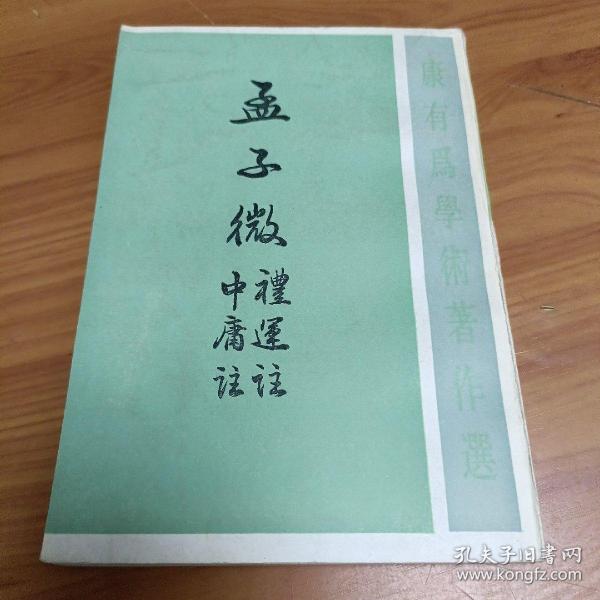 康有爲學術著作選
孟子微
禮運註
中庸註
孔夫子旧書网
www.kongfz.com